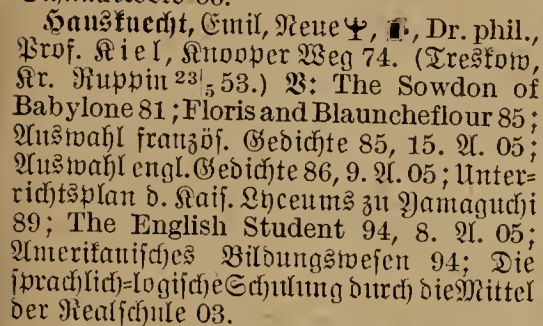 Hausknecht, Emil, Neue, Dr. phil.,
Prof. Kiel, Knooper Weg 74. (Treskow,
Kr. Ruppin 23|5 53.) V: The Sowdon of
Babylone 81; Floris and Blauncheflour 85;
Auswahl französ. Gedichte 85, 15. A. 05;
Auswahl engl. Gedichte 86, 9. A. 05; Unter=
richtsplan d. Kais. Lyceums zu Yamaguchi
89; The English Student 94, 8. A. 05;
Amerikanisches Bildungswesen 94; Die
sprachlich=logische Schulung durch die Mittel
der Realschule 03.